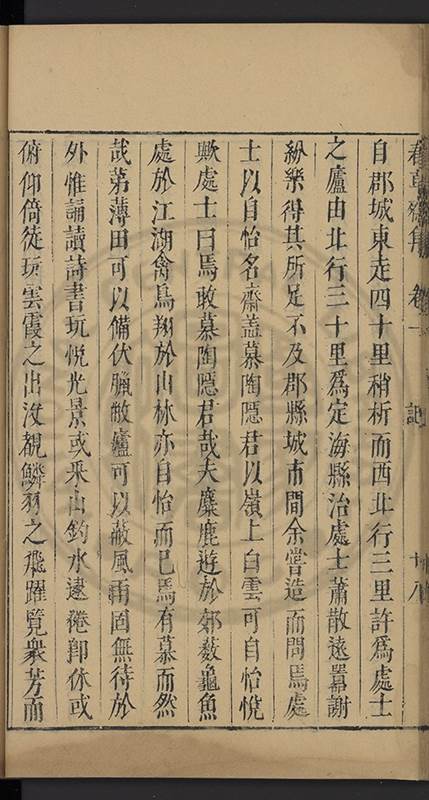 春草齋集 卷十 記 十八
自郡城東走四十里稍析而西北行三里許為處士
之廬由北行三十里為定海縣治處士蕭散遠囂謝
紛樂得其所足不及郡縣城市間余嘗造而問焉處
士以自怡名齋盖慕陶隱君以嶺上白雲可自怡悅
歟處士曰焉敢慕陶隱君哉夫麋鹿遊於郊薮龜魚
處於江湖禽鳥翔於山林亦自怡而已焉有慕而然
哉第薄田可以備伏臘敝廬可以蔽風雨固無待於
外惟誦讀詩書玩悅光景或采山釣水逮倦卽休或
俯仰倚徒玩雲霞之出沒覩鱗羽之飛躍覽衆芳而